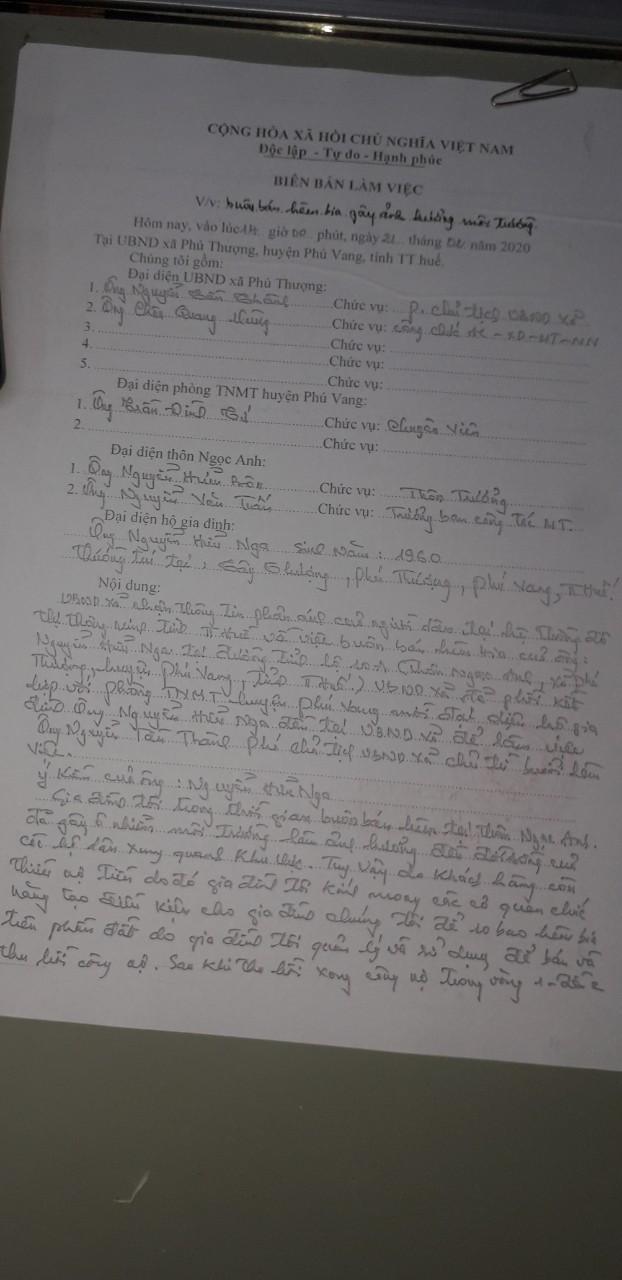 CỘNG HÒA XÃ HỘI CHỦ NGHĨA VIỆT NAM
Độc lập - Tự do - Hạnh phúc
BIÊN BẢN LÀM VIỆC
V/v: buôn bán hèm bia gây ảnh hưởng môi trường
Hôm nay, vào lúc giờ 00 phút, ngày 21 tháng năm 2020
Tại UBND xã Phú Thượng, huyện Phú Vang, tỉnh TT huế.
Chúng tôi gồm:
Đại diện UBND xã Phú Thượng:
1. Ông Nguyễn Chức vụ: P. chủ tịch UBND xã
2. Ông Quang Chức vụ: công chức ĐC - XD - MT - NN
3. Chức vụ:
4. Chức vụ:
5. Chức vụ:
Đại diện phòng TNMT huyện Phú Vang:
1. Ông Trần Đình Chức vụ: Chuyên Viên
2. Chức vụ:
Đại diện thôn Ngọc Anh:
1. Ông Nguyễn Hữu Chức vụ: Thôn Trưởng
2. Ông Nguyễn Văn Tuấn Chức vụ: Trưởng ban công tác MT.
Đại diện hộ gia đình:
Ông Nguyễn Hữu Nga sinh năm: 1960
Thường trú tại: Tây Thượng, Phú Thượng, Phú Vang, TT Huế.
Nội dung:
UBND xã nhận thông tin phản ánh của người dân tại hệ thống đô
thị thông minh tỉnh TT Huế về việc buôn bán hèm bia của ông:
Nguyễn Hữu Nga tại đường tỉnh lộ 10A (thôn Ngọc Anh, xã Phú
Thượng, huyện Phú Vang, tỉnh TT Huế.) UBND xã đã phối kết
hợp với phòng TNMT huyện Phú Vang mời đại diện hộ gia
đình Ông Nguyễn Hữu Nga đến tại UBND xã để làm việc
Ông Nguyễn Tấn Thành phó chủ tịch UBND xã chủ trì buổi làm
việc.
ý kiến của ông: Nguyễn Hữu Nga
Gia đình tôi trong thời gian buôn bán hèm tại thôn Ngọc Anh.
đã gây ô nhiễm môi trường làm ảnh hưởng đến đời sống của
các hộ dân xung quanh khu vực. Tuy vậy do khách hàng còn
thiếu nợ tiền do đó gia đình tôi kính mong các cơ quan chức
năng tạo điều kiện cho gia đình chúng tôi để 10 bao hèm bia
trên phần đất do gia đình tôi quản lý và sử dụng để bán và
thu hồi công nợ. Sau khi thu hồi xong công nợ trong vòng 1 đến 2